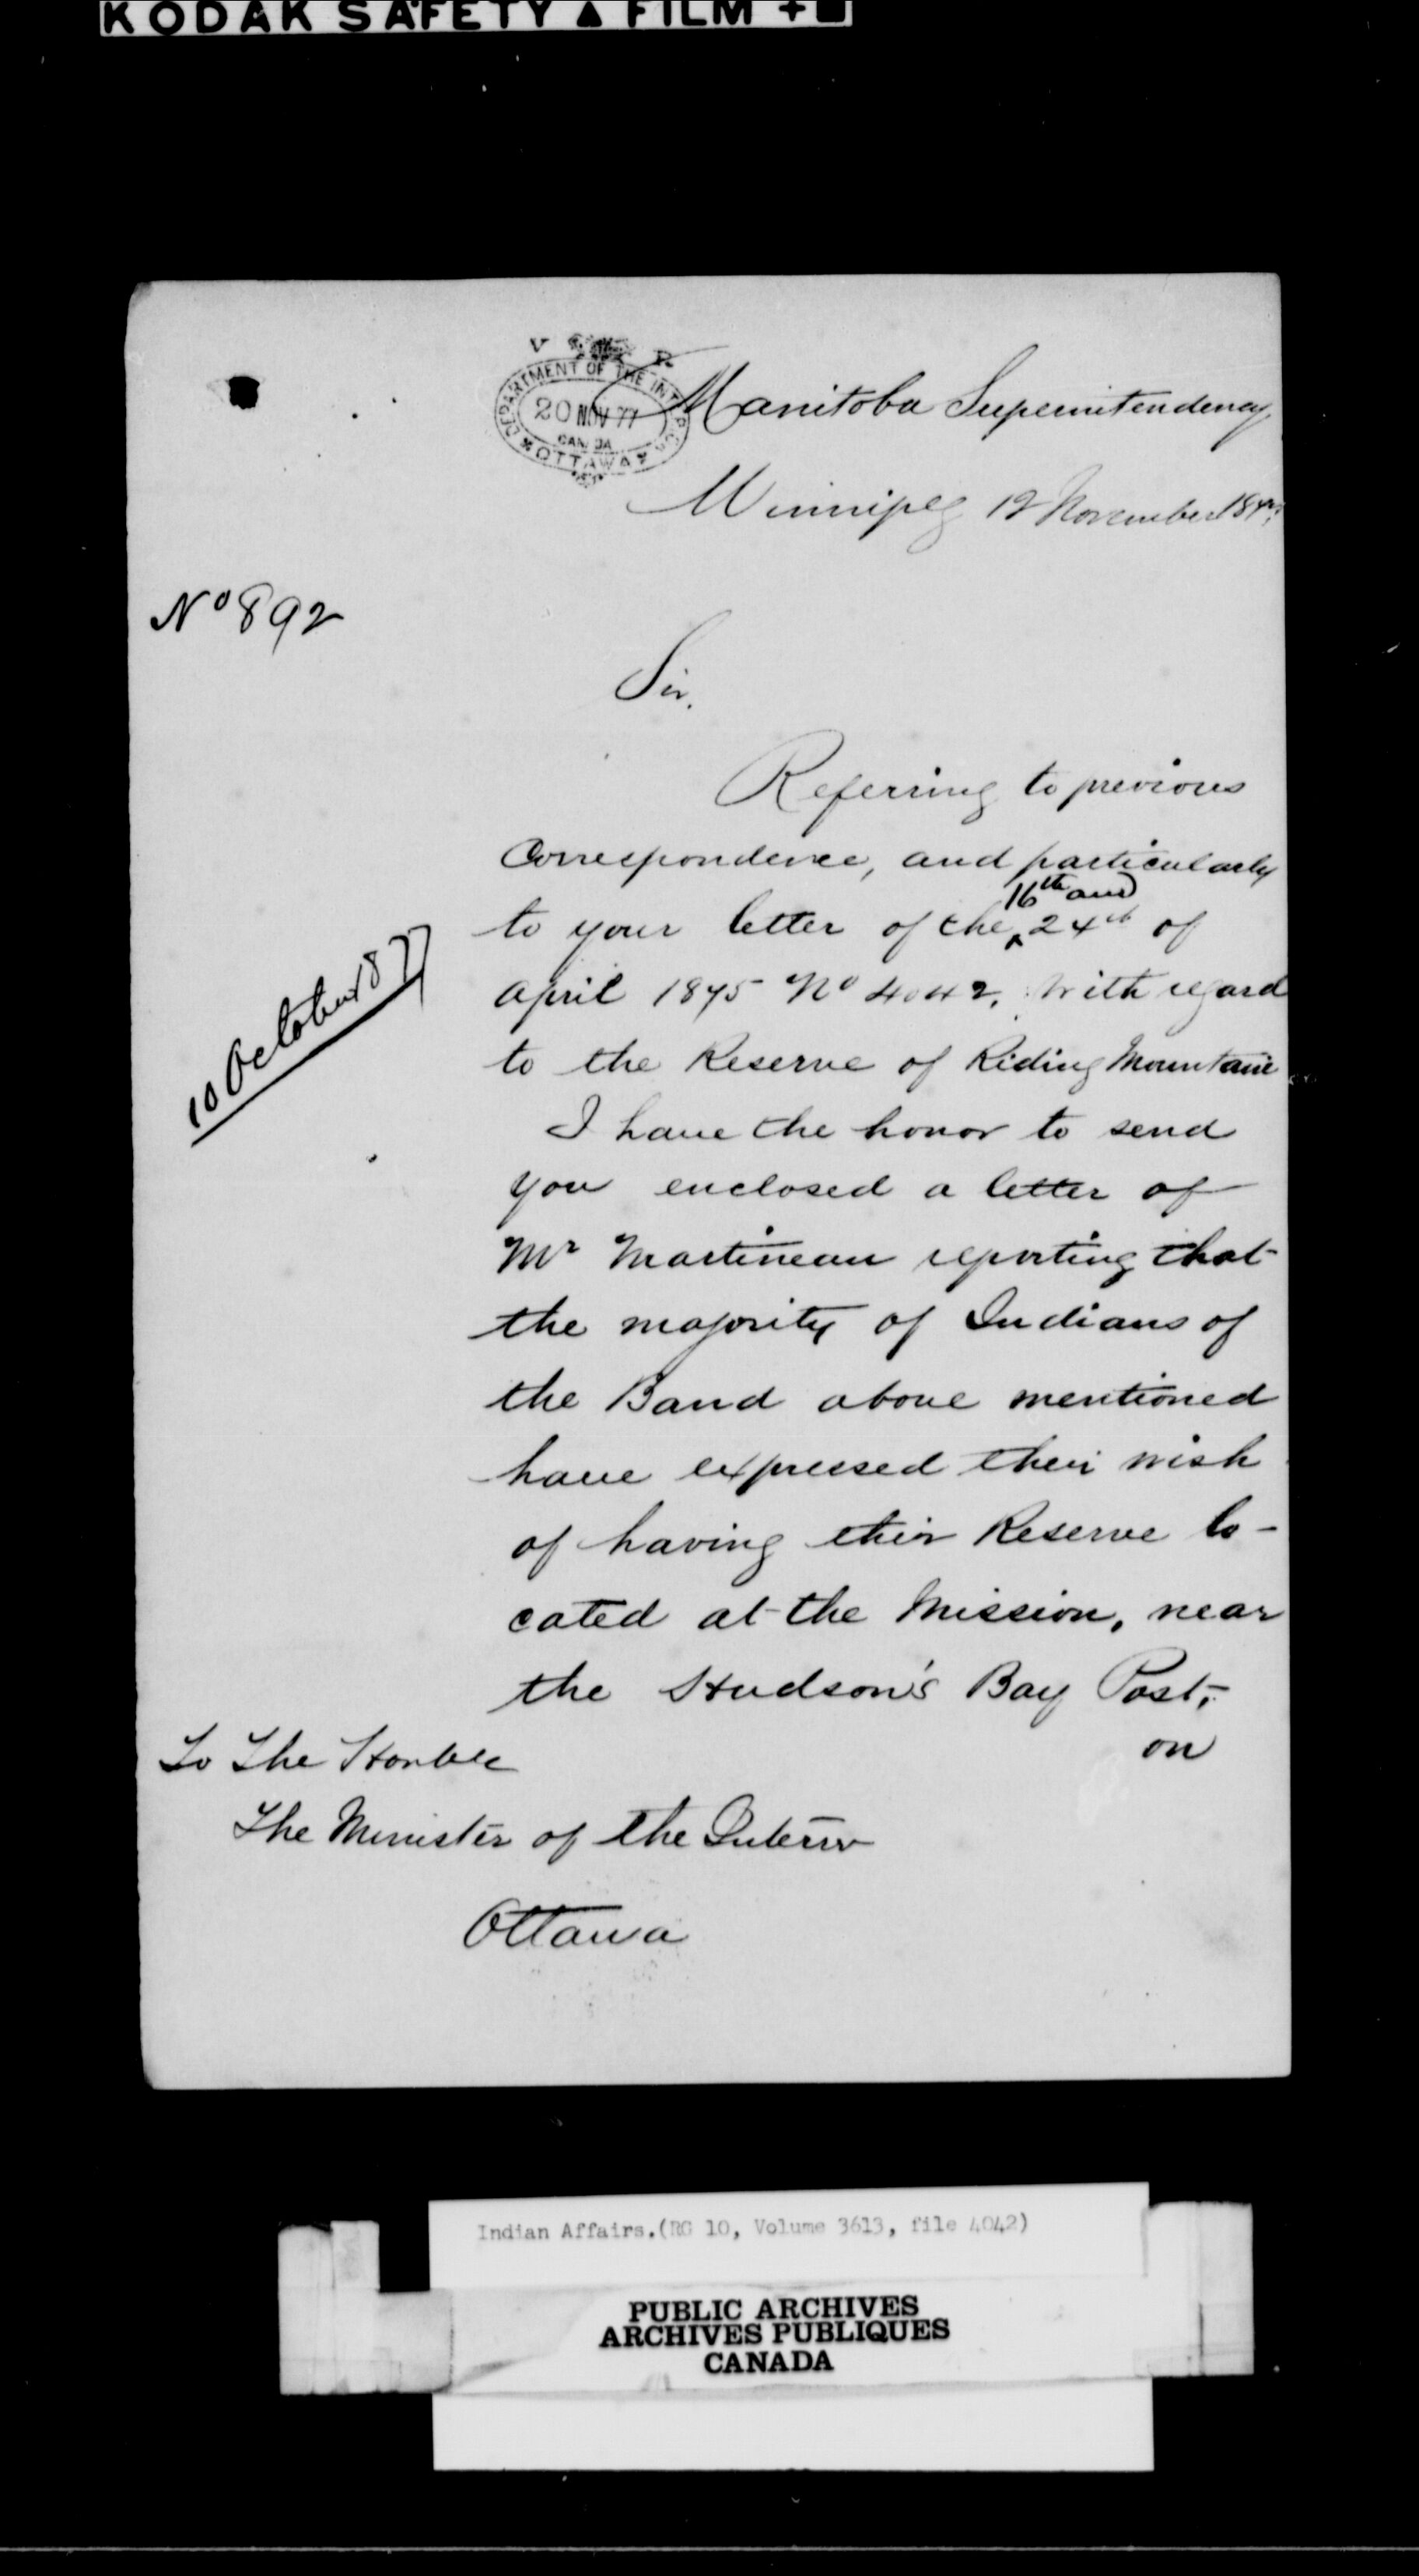 KODAK SAFETY ▲ FILM +
V R
DEPARTMENT OF THE INTERIOR
20 NOV 77
CANADA
OTTAWA
Manitoba Superintendency
Winnipeg 12 November 1877
No 892
Sir,
Referring to previous
Correspondence, and particularly
to your letter of the 16th and 24th of
April 1875 No 4042, With regard
to the Reserve of Riding Mountain
10 October 1877
I have the honor to send
you enclosed a letter of
Mr Martineau reporting that
the majority of Indians of
the Band above mentioned
have expressed their wish
of having their Reserve lo-
cated at the Mission, near
the Hudson's Bay Post,
on
To The Honble
The Minister of the Interior
Ottawa
Indian Affairs.(RG 10, Volume 3613, file 4042)
PUBLIC ARCHIVES
ARCHIVES PUBLIQUES
CANADA